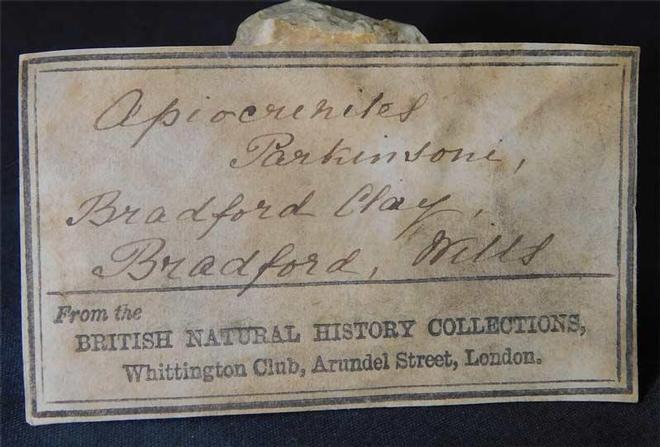 Apiocrinites
Parkinsoni,
Bradford Clay,
Bradford, Wilts
From the
BRITISH NATURAL HISTORY COLLECTIONS,
Whittington Club, Arundel Street, London.